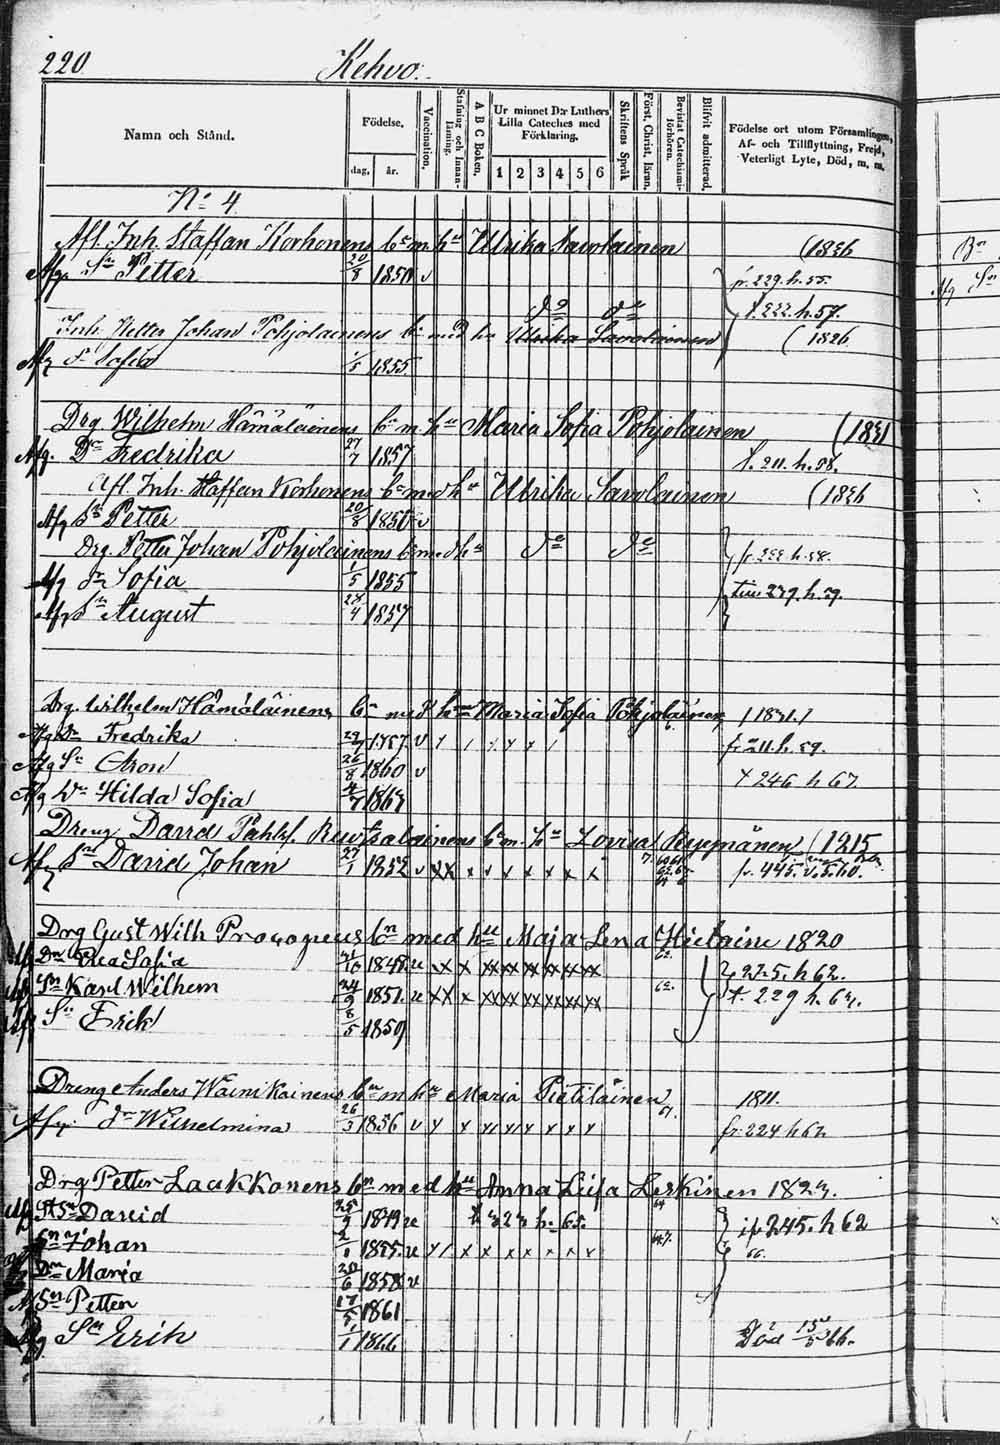 220. Kehvo.
Namn och Stånd.
Födelse,
dag, år.
Vaccination.
Stafning och Innan-läsning.
A B C Boken.
Ur minnet D:r Luthers Lilla Cateches med Förklaring.
1 2 3 4 5 6
Skriftens Språk
Först. Christ. läran.
Bevistat Catechismi-förhören.
Blifvit admitterad.
Födelse ort utom Församlingen, Af- och Tillflyttning, Frejd, Veterligt Lyte, Död, m. m.
No 4
Afl. Inh. Staffan Korhonens bn m. hu Ulrika Savolainen (1826
Afg. Sn Petter 20/8 1850 v fr. 229. h. 55.
dn dn t. 222. h. 57.
Inh. Petter Johan Pohjolainens bn med hu Ulrika Savolainen (1826
Afg dr Sofia 1/5 1855
Drg Wilhelm Hämäläinens bn m. hu Maria Sofia Pohjolainen (1831
Afg. Dr Fredrika 27/7 1857 t. 211. h. 58.
Afl. Inh. Staffan Korhonens bn med hu Ulrika Savolainen (1826
Afg Sn Petter 20/8 1850 v
Drg. Petter Johan Pohjolainens bn med hu dn dn fr. 222. h. 58.
Afg dr Sofia 1/5 1855
till 279. h. 59.
Afg Sn August 28/4 1857
Drg. Wilhelm Hämäläinens bn med hu Maria Sofia Pohjolainen (1831.)
Afg Dr Fredrika 27/7 1857. v fr 211. h. 59.
Afg Sn Aron 26/8 1860 v t 246 h 67.
Afg Dr Hilda Sofia 4/7 1863
Dreng David Påhls. Reutsalainens bn m. hu Lovisa Reijmänen (1815
Afg Sn David Johan 27/1 1852 v x x x x x x x x x fr. 445.
Drg Gust Wilh Procopeus bn med hu Maja Lena Hietaine 1820
Dr Eva Sofia 1848. v xx x xx xx xx xx xx xx 62. 225. h 62.
Sn Karl Wilhem 24/9 1851. v xx x xx xx xx xx xx xx 62. t. 229 h. 63.
Sn Erik 8/5 1859
Dreng Anders Wainikainens bn m hu Maria Pietiläinen 1811.
Afg. dr Wilhelmina 26/3 1856 v x x x x x x x x fr. 224 h 62.
Drg Petter Laakkonens bn med hu Anna Lisa Leskinen 1823.
Sn David 25/9 1849 v t 323 h. 65. 64 ifr 245. h 62
Sn Johan 2/1 1855. v x x x x x x x x
66.
Dr Maria 20/6 1858 v
Sn Petter 17/5 1861
Sn Erik 1/1 1866 Död 66.